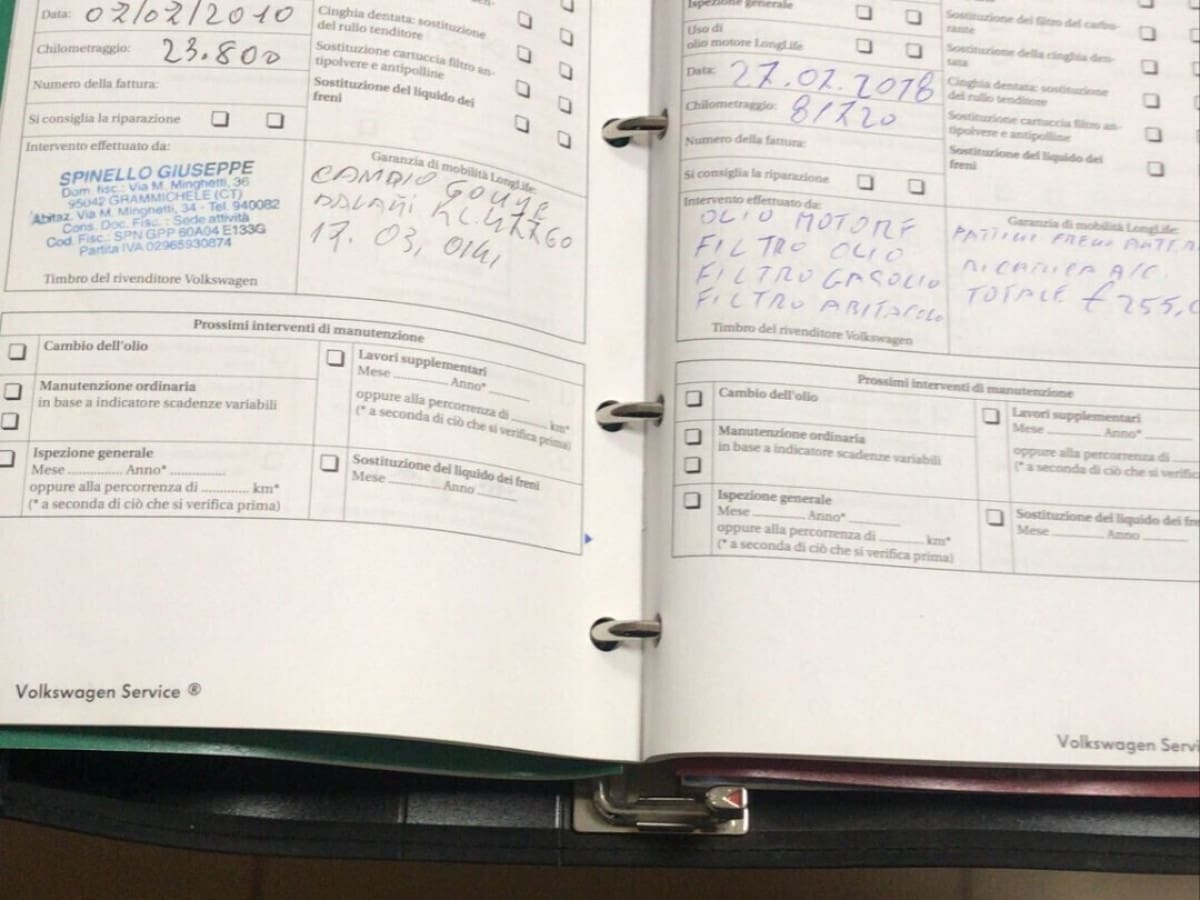 Data: 02/02/2010
Chilometraggio: 23.800
Numero della fattura:
Si consiglia la riparazione
Intervento effettuato da:
SPINELLO GIUSEPPE
Dom. fisc.: Via M. Minghetti, 36
95042 GRAMMICHELE (CT)
Abitaz. Via M. Minghetti, 34 - Tel. 940082
Cons. Doc. Fisc.: Sede attività
Cod. Fisc.: SPN GPP 60A04 E133G
Partita IVA 02965930874
Timbro del rivenditore Volkswagen
Cinghia dentata: sostituzione
del rullo tenditore
Sostituzione cartuccia filtro an-
tipolvere e antipolline
Sostituzione del liquido dei
freni
Garanzia di mobilità LongLife:
CAMBIO GOMME
17. 03,
Prossimi interventi di manutenzione
Cambio dell'olio
Manutenzione ordinaria
in base a indicatore scadenze variabili
Ispezione generale
Mese Anno*
oppure alla percorrenza di km*
(* a seconda di ciò che si verifica prima)
Lavori supplementari
Mese Anno*
oppure alla percorrenza di km*
(* a seconda di ciò che si verifica prima)
Sostituzione del liquido dei freni
Mese Anno
Volkswagen Service ®
Ispezione generale
Uso di
olio motore LongLife
Data: 27.02.2018
Chilometraggio: 81220
Numero della fattura:
Si consiglia la riparazione
Intervento effettuato da:
OLIO MOTORE
FILTRO OLIO
FILTRO GASOLIO
FILTRO ABITACOLO
Timbro del rivenditore Volkswagen
Sostituzione del filtro del carbu-
rante
Sostituzione della cinghia den-
tata
Cinghia dentata: sostituzione
del rullo tenditore
Sostituzione cartuccia filtro an-
tipolvere e antipolline
Sostituzione del liquido dei
freni
Garanzia di mobilità LongLife:
PATTINI FRENO
RICARICA A/C.
TOTALE € 255,
Prossimi interventi di manutenzione
Cambio dell'olio
Manutenzione ordinaria
in base a indicatore scadenze variabili
Ispezione generale
Mese Anno*
oppure alla percorrenza di km*
(* a seconda di ciò che si verifica prima)
Lavori supplementari
Mese Anno*
oppure alla percorrenza di
(* a seconda di ciò che si
Sostituzione del liquido dei
Mese Anno
Volkswagen